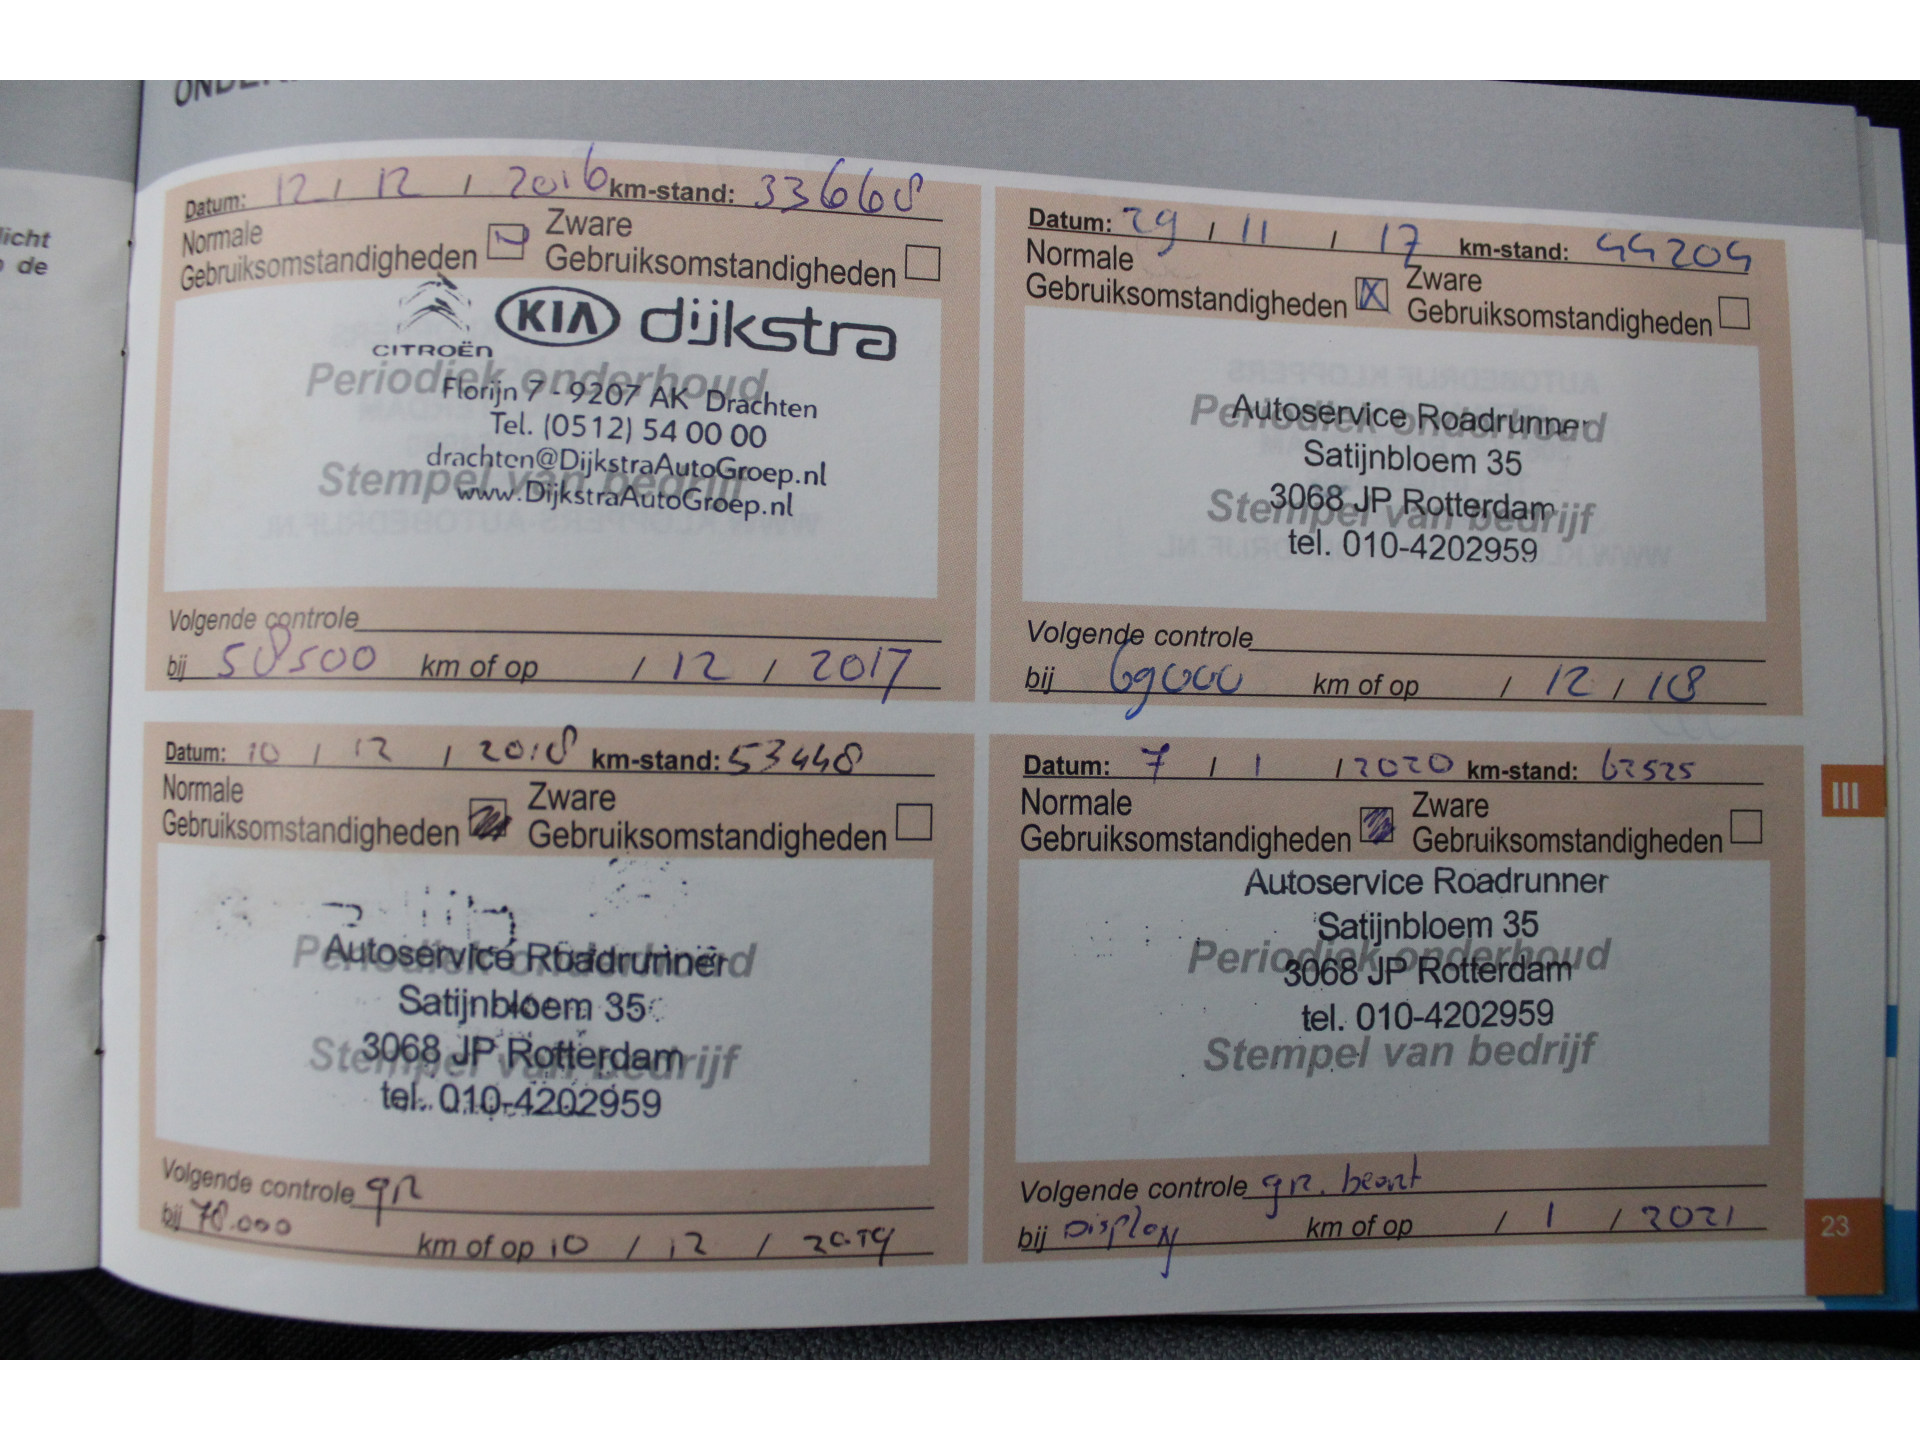 licht
de
Datum: 12 / 12 / 2016 km-stand: 33668
Normale
Gebruiksomstandigheden
Zware
Gebruiksomstandigheden
CITROËN KIA dijkstra
Periodiek onderhoud
Florijn 7 - 9207 AK Drachten
Tel. (0512) 54 00 00
drachten@DijkstraAutoGroep.nl
Stempel van bedrijf
www.DijkstraAutoGroep.nl
Volgende controle
bij 58500 km of op / 12 / 2017
Datum: 29 / 11 / 17 km-stand: 44204
Normale
Gebruiksomstandigheden X
Zware
Gebruiksomstandigheden
Autoservice Roadrunner
Periodiek onderhoud
Satijnbloem 35
3068 JP Rotterdam
Stempel van bedrijf
tel. 010-4202959
Volgende controle
bij 69000 km of op / 12 / 18
Datum: 10 / 12 / 2018 km-stand: 53448
Normale
Gebruiksomstandigheden
Zware
Gebruiksomstandigheden
Autoservice Roadrunner
Periodiek onderhoud
Satijnbloem 35
3068 JP Rotterdam
Stempel van bedrijf
tel. 010-4202959
Volgende controle gr
bij 78.000 km of op 10 / 12 / 2019
Datum: 7 / 1 / 2020 km-stand: 62525
Normale
Gebruiksomstandigheden
Zware
Gebruiksomstandigheden
Autoservice Roadrunner
Satijnbloem 35
Periodiek onderhoud
3068 JP Rotterdam
tel. 010-4202959
Stempel van bedrijf
Volgende controle gr. beurt
bij Display km of op / 1 / 2021
III
23